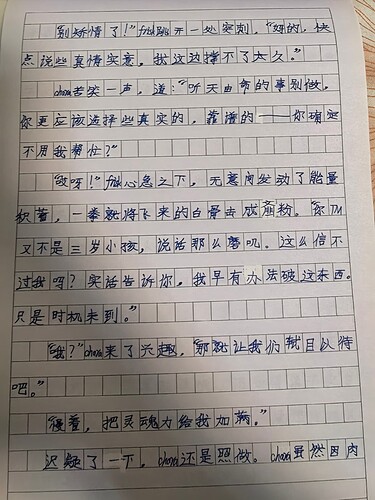 "别矫情了！"fisk跳开一处突刺，"好的，快
点说些真情实意，我这边撑不了太久。"
chara苦笑一声，道："听天由命的事别做，
你更应该选择些真实的，靠谱的——你确定
不用我帮忙？"
"哎呀！"心急之下，无意间发动了胎量
积蓄，一拳就将飞来的白骨击成齑粉。"你TM
又不是三岁小孩，说话那么磨叽。这么信不
过我吗？实话告诉你，我早有办法破这东西。
只是时机未到。"
"哦？"chara来了兴趣，"那就让我们拭目以待
吧。"
"接着，把灵魂力给我加满。"
迟疑了一下，chara还是照做。chara虽然因肉